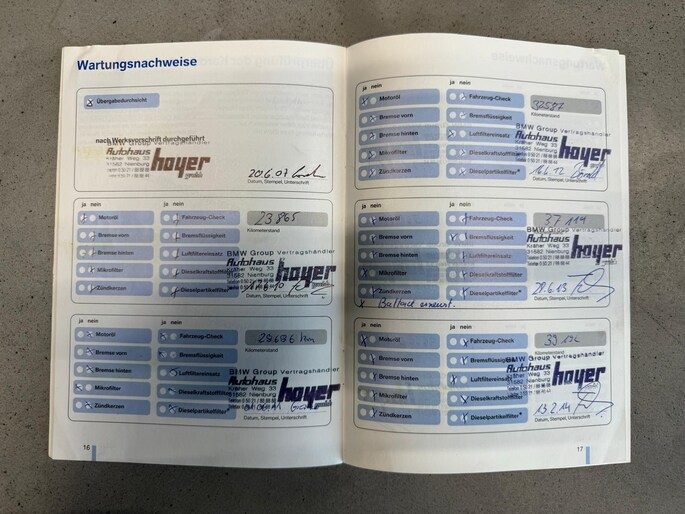 Wartungsnachweise
Übergabedurchsicht
nach Werksvorschrift durchgeführt
BMW Group Vertragshändler
Autohaus hoyer
Kräher Weg 33
31582 Nienburg
20.6.07
Datum, Stempel, Unterschrift
ja nein nein
Motoröl
Fahrzeug-Check
23865
Kilometerstand
Bremse vorn
Bremsflüssigkeit
Bremse hinten
Luftfiltereinsatz
BMW Group Vertragshändler
Autohaus hoyer
Kräher Weg 33
31582 Nienburg
Mikrofilter
Dieselkraftstofffilter
Zündkerzen
Dieselpartikelfilter
Datum, Stempel, Unterschrift
ja nein nein
Motoröl
Fahrzeug-Check
28686 km
Kilometerstand
Bremse vorn
Bremsflüssigkeit
Bremse hinten
Luftfiltereinsatz
BMW Group Vertragshändler
Autohaus hoyer
Kräher Weg 33
31582 Nienburg
Mikrofilter
Dieselkraftstofffilter
Zündkerzen
Dieselpartikelfilter
Datum, Stempel, Unterschrift
16
ja nein ja nein
Motoröl
Fahrzeug-Check
32587
Kilometerstand
Bremse vorn
Bremsflüssigkeit
Bremse hinten
Luftfiltereinsatz
BMW Group Vertragshändler
Autohaus hoyer
Kräher Weg 33
31582 Nienburg
Mikrofilter
Dieselkraftstofffilter
Zündkerzen
Dieselpartikelfilter*
Datum, Stempel, Unterschrift
ja nein ja nein
Motoröl
Fahrzeug-Check
37119
Kilometerstand
Bremse vorn
Bremsflüssigkeit
BMW Group Vertragshändler
Autohaus hoyer
Kräher Weg 33
31582 Nienburg
Bremse hinten
Luftfiltereinsatz
Mikrofilter
Dieselkraftstofffilter
Zündkerzen
Dieselpartikelfilter*
28.6.13
Datum, Stempel, Unterschrift
ja nein ja nein
Motoröl
Fahrzeug-Check
Kilometerstand
Bremse vorn
Bremsflüssigkeit
BMW Group Vertragshändler
Autohaus hoyer
Kräher Weg 33
31582 Nienburg
Bremse hinten
Luftfiltereinsatz
Mikrofilter
Dieselkraftstofffilter
Zündkerzen
Dieselpartikelfilter*
13.2.14
Datum, Stempel, Unterschrift
17